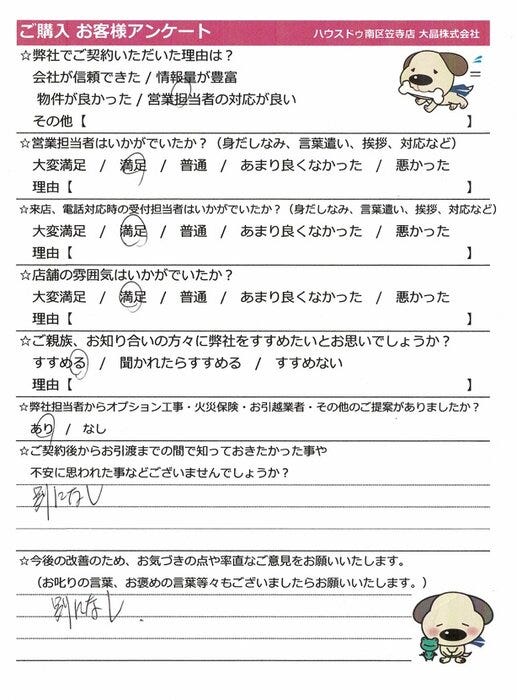 ご購入 お客様アンケート ハウスドゥ南区笠寺店 大晶株式会社
☆弊社でご契約いただいた理由は?
会社が信頼できた / 情報量が豊富
物件が良かった / 営業担当者の対応が良い
その他【 】
☆営業担当者はいかがでいたか?(身だしなみ、言葉遣い、挨拶、対応など)
大変満足 / 満足 / 普通 / あまり良くなかった / 悪かった
理由【 】
☆来店、電話対応時の受付担当者はいかがでいたか?(身だしなみ、言葉遣い、挨拶、対応など)
大変満足 / 満足 / 普通 / あまり良くなかった / 悪かった
理由【 】
☆店舗の雰囲気はいかがでいたか?
大変満足 / 満足 / 普通 / あまり良くなかった / 悪かった
理由【 】
☆ご親族、お知り合いの方々に弊社をすすめたいとお思いでしょうか?
すすめる / 聞かれたらすすめる / すすめない
理由【 】
☆弊社担当者からオプション工事・火災保険・お引越業者・その他のご提案がありましたか?
あり / なし
☆ご契約後からお引渡までの間で知っておきたかった事や
不安に思われた事などございませんでしょうか?
別になし
☆今後の改善のため、お気づきの点や率直なご意見をお願いいたします。
(お叱りの言葉、お褒めの言葉等々もございましたらお願いいたします。)
別になし.